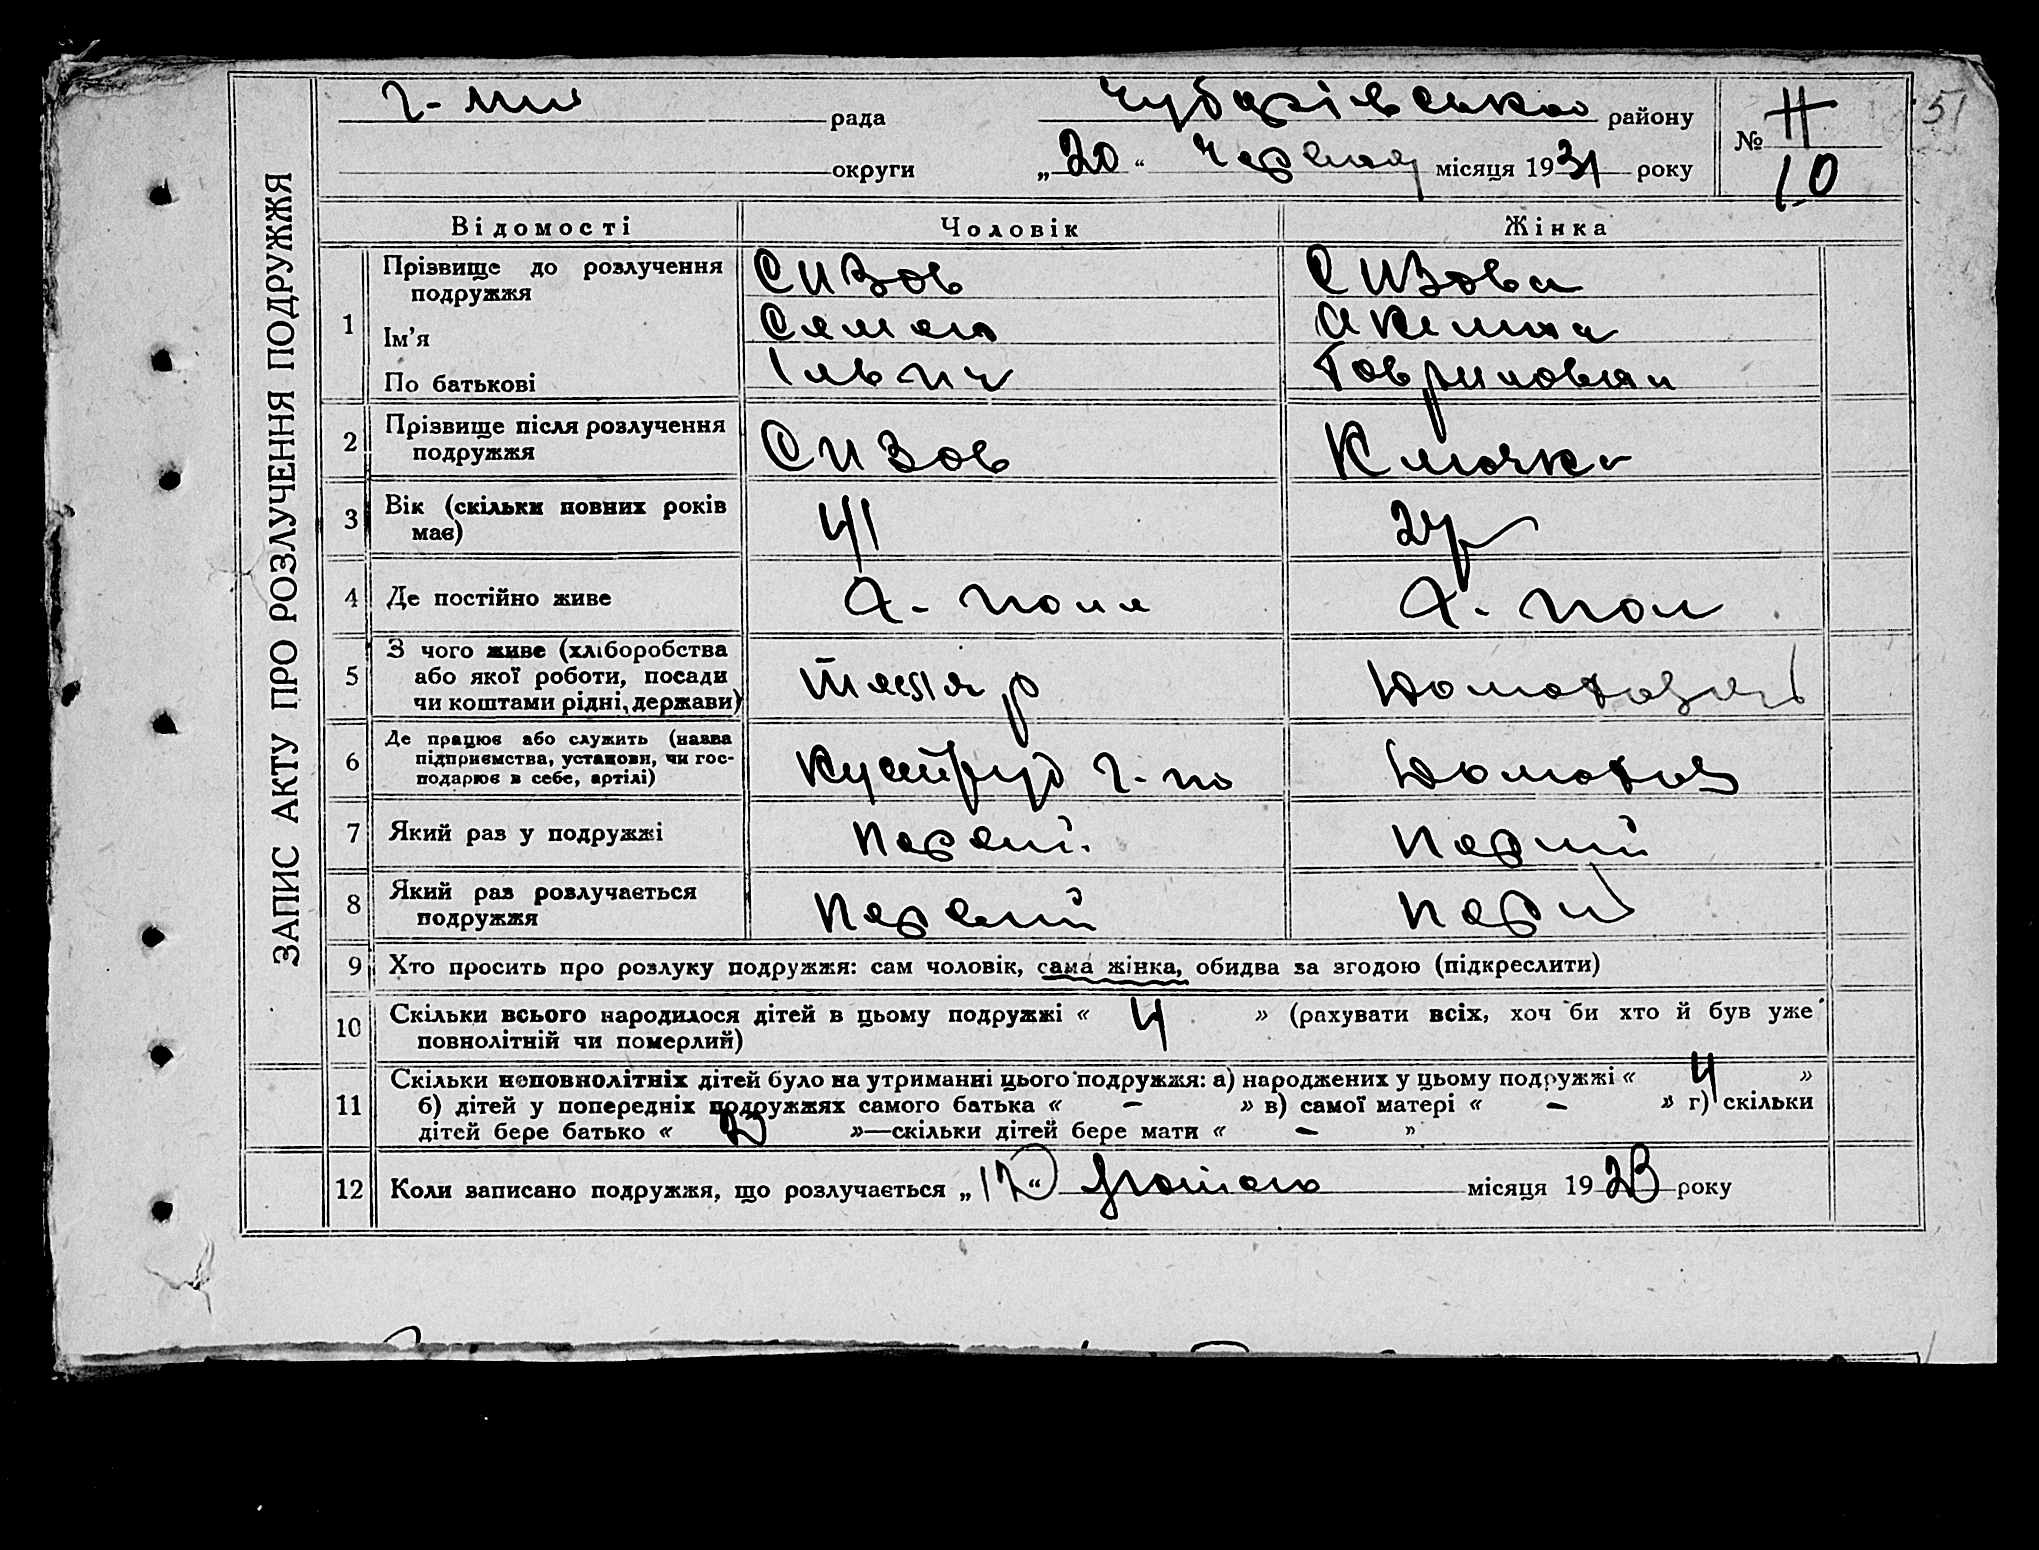 ЗАПИС АКТУ ПРО РОЗЛУЧЕННЯ ПОДРУЖЖЯ
рада Чубарівського району
№ 11
51
округи „20“ червня місяця 1931 року
10
Відомості Чоловік Жінка
1 Прізвище до розлучення подружжя Сизов Сизова
Ім'я Семен Акелина
По батькові Ільич Гавриловна
2 Прізвище після розлучення подружжя Сизов Клочко
3 Вік (скільки повних років має) 41
4 Де постійно живе
5 З чого живе (хліборобства або якої роботи, посади чи коштами рідні, держави) Тесляр
6 Де працює або служить (назва підприємства, установи, чи господарює в себе, артілі)
7 Який раз у подружжі Перший Перший
8 Який раз розлучається подружжя Перший
9 Хто просить про розлуку подружжя: сам чоловік, сама жінка, обидва за згодою (підкреслити)
10 Скільки всього народилося дітей в цьому подружжі « 4 » (рахувати всіх, хоч би хто й був уже
повнолітній чи померлий)
11 Скільки неповнолітніх дітей було на утриманні цього подружжя: а) народжених у цьому подружжі « 4 »
б) дітей у попередніх подружжях самого батька « – » в) самої матері « – » г) скільки
дітей бере батько « » —скільки дітей бере мати « – »
12 Коли записано подружжя, що розлучається „ “ місяця 1923 року